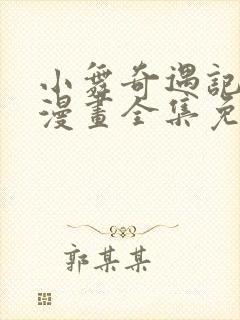 小舞奇遇記
漫畫全集免
郭某某